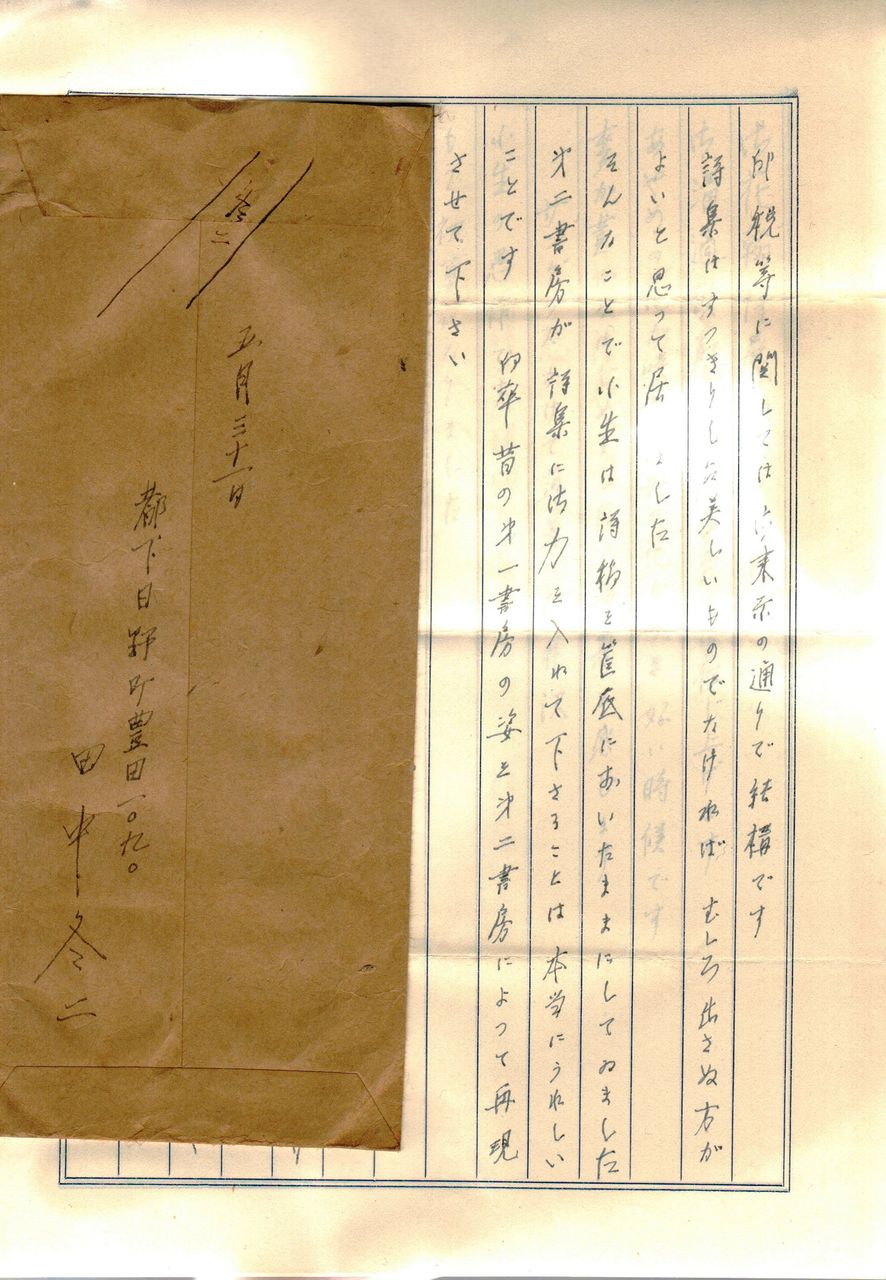 印税等に関しては御来示の通りで結構です
詩集はすっきりした美しいものでなければ むしろ出さぬ方が
よいと思って居ました
そんなことで小生は詩稿を筐底においたままにしてゐました
第二書房が 詩集に御力を入れて下さることは 本当にうれしい
ことです 何卒昔の第一書房の姿を第二書房によって再現
させて下さい
冬二
五月三十一日
都下日野町豊田一〇九〇
田中冬二